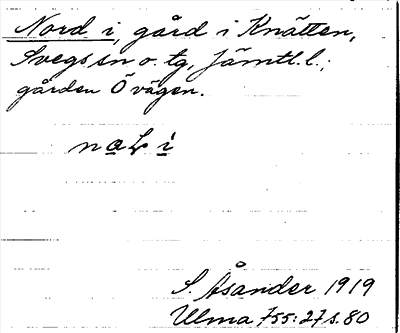 Nord i, gård i Knätten,
Svegs sn o. tg, Jämtl. l.;
gården Ö vägen.
S. Åsander 1919
Ulma 755:27 s. 80